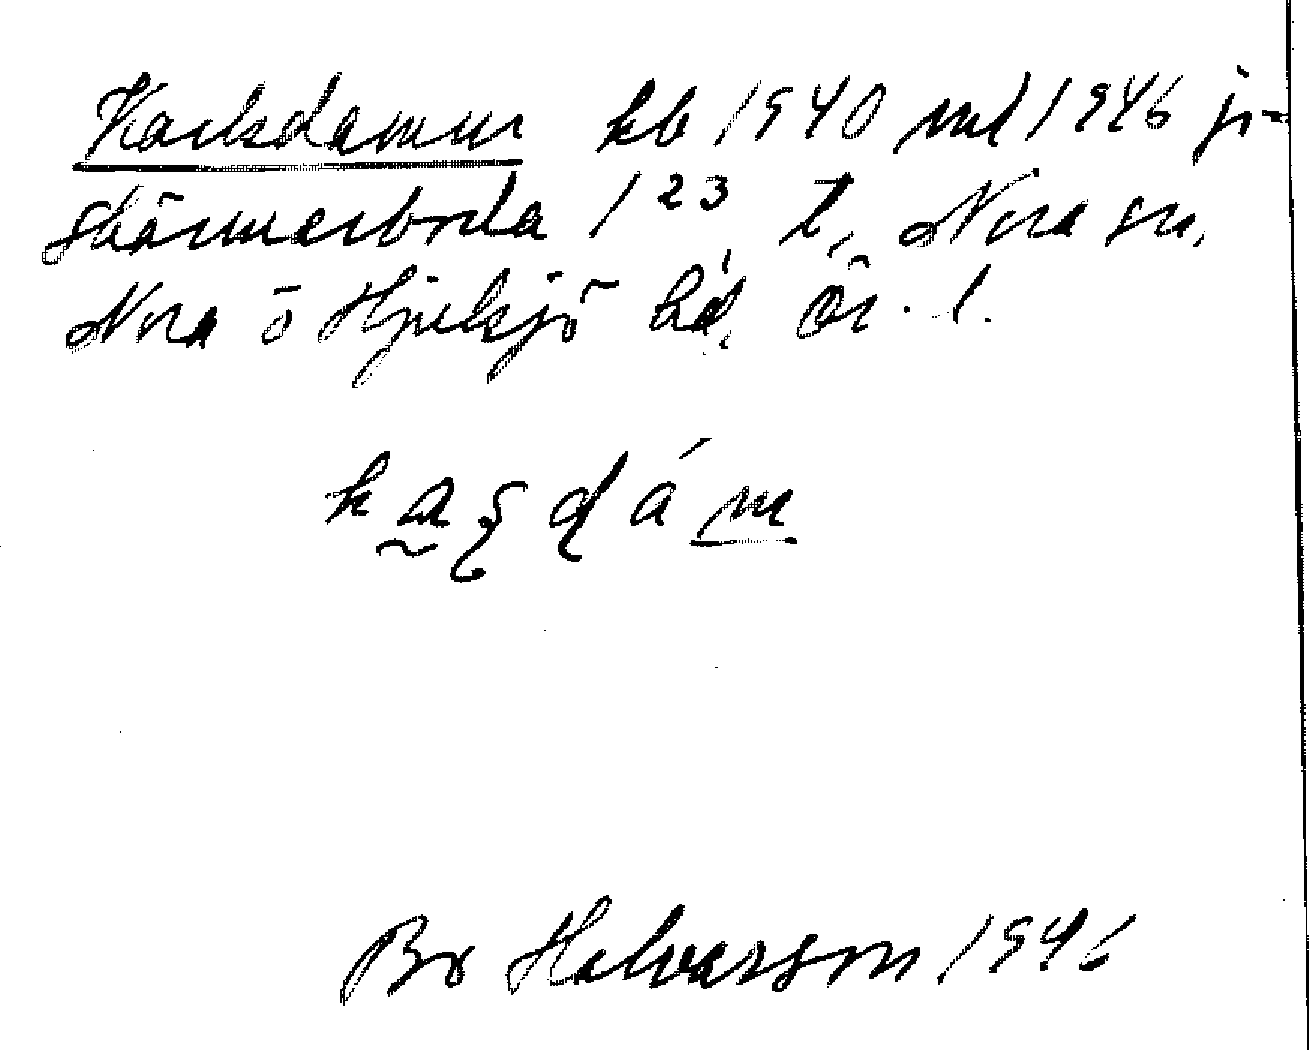 Karlsdamm kb 1940 ml 1946 ji-
Skärmarboda 1²³ t, Nora sn,
Nora ō Hjulsjö hd, Ör. l.
kaʂdám
Bo Halvarson 1946